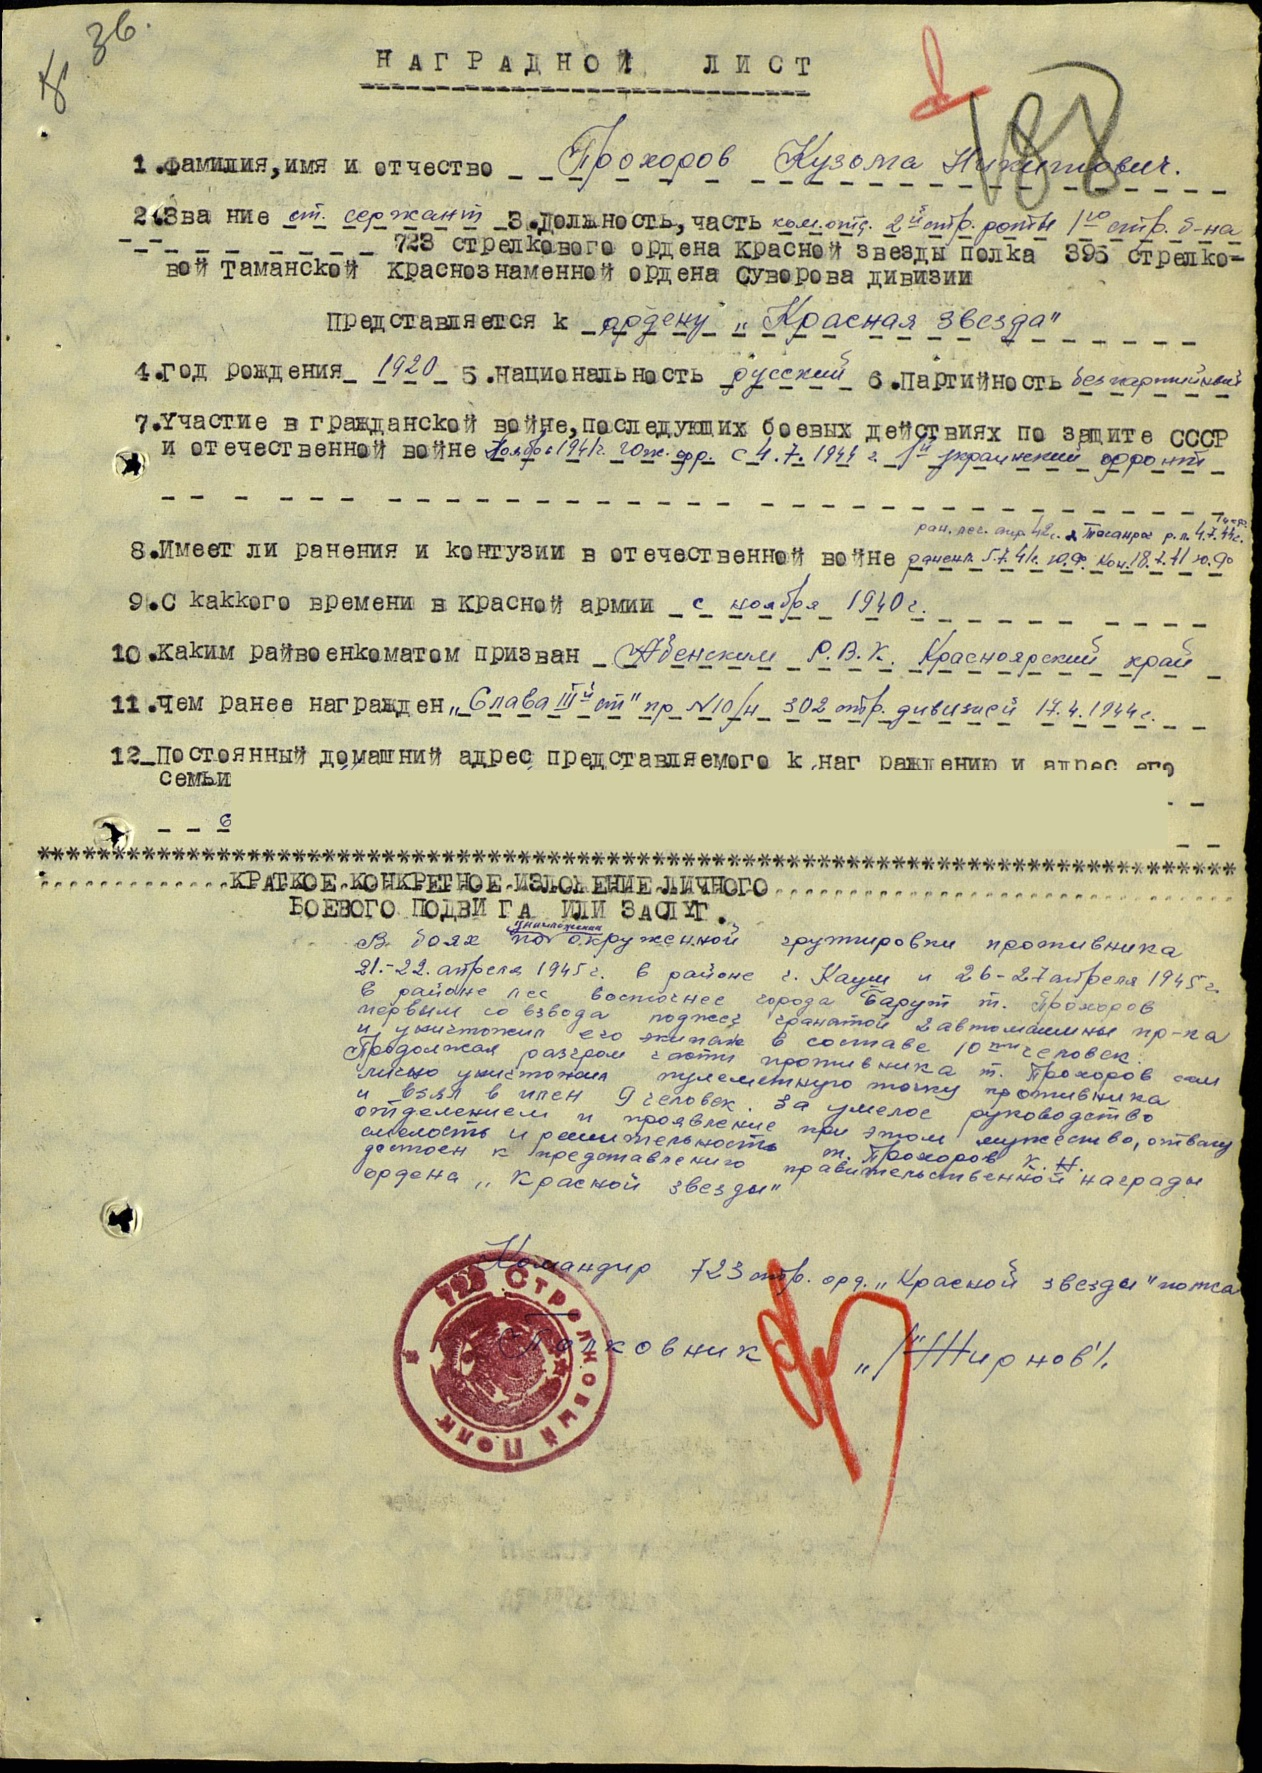 36.
НАГРАДНОЙ ЛИСТ
188
1.Фамилия,имя и отчество Прохоров Кузьма Никитович.
2.Зва ние ст. сержант 3.Должность,часть ком.отд. 2й стр. роты 1го стр. б-на
723 стрелкового ордена Красной Звезды полка 395 стрелко-
вой Таманской Краснознаменной ордена Суворова дивизии
Представляется к ордену „Красная звезда"
4.Год рождения 1920 5.Национальность русский 6.Партийность беспартийный
7.Участие в гражданской войне,последующих боевых действиях по защите СССР
и отечественной войне Ноябрь 1941г. Юж. фр. с 4.7.1944 г. 1й украинский фронт
ран. лег. 42г. Таганрог 4.7.44г.
8.Имеет ли ранения и контузии в отечественной войне ранен 5.7.41г. Ю.Ф. Кон. 18.7.41 Ю.Ф
9.С каккого времени в Красной армии с ноября 1940г.
10.Каким райвоенкоматом призван Абенским Р.В.К. Красноярский край
11.Чем ранее награжден „Слава III й ст" пр N 10/н 302 стр. дивизией 17.4.1944г.
12 Постоянный домашний адрес представляемого к наг раждению и адрес его
семьи
КРАТКОЕ КОНКРЕТНОЕ ИЗЛОЖЕНИЕ ЛИЧНОГО
БОЕВОГО ПОДВИ ГА ИЛИ ЗАСЛУГ.
уничтожении
В боях по окруженной группировки противника
21.-22. апреля 1945г. в районе г. Кауш и 26-27 апреля 1945г.
в районе лес восточнее города Барут т. Прохоров
первым со взвода поджег гранатой 2 автомашины пр-ка
и уничтожил его экипаж в составе 10ти человек.
Продолжая разгром части противника т. Прохоров сам
лично уничтожил пулеметную точку противника
и взял в плен 9 человек. За умелое руководство
отделением и проявление при этом мужество, отвагу
смелость и решительность т. Прохоров К.Н.
достоен к представлению правительственной награды
ордена „Красной звезды"
Командир 723 стр. орд. „Красной звезды" полка
Полковник „/"Жирнов"/.
723 Стрелковый Полк